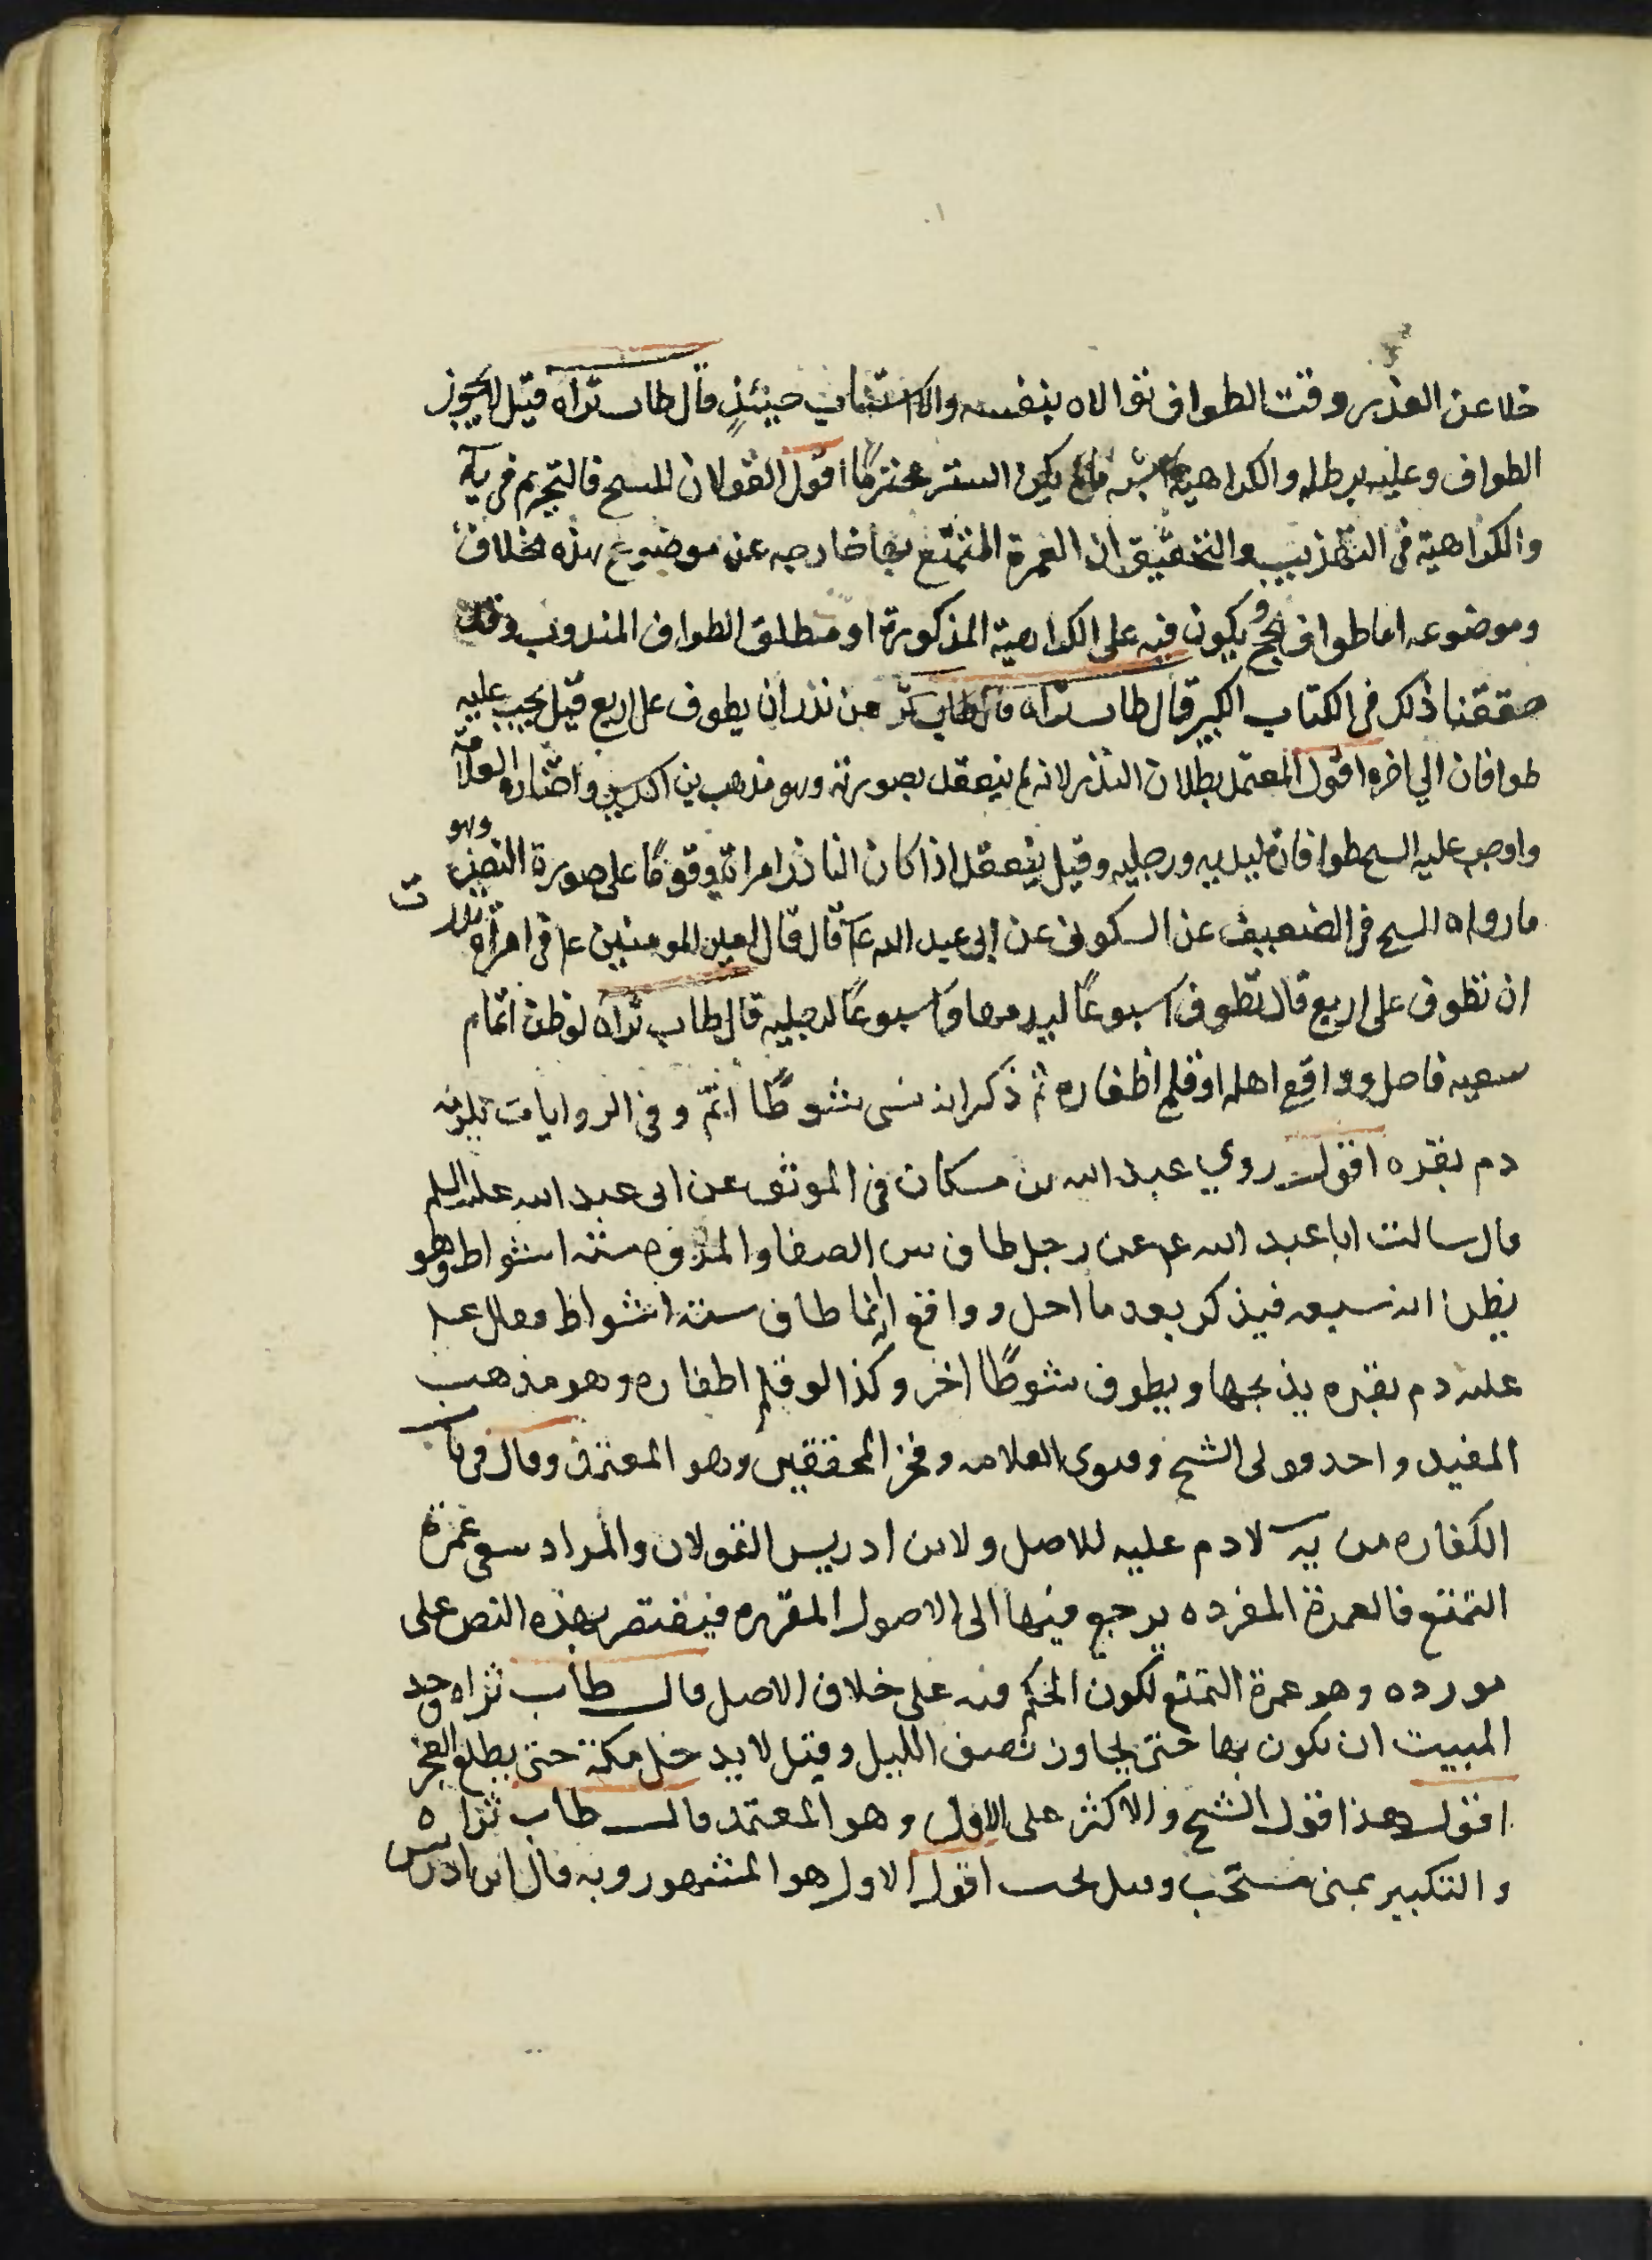 خلا عن العذر وقت الطواف تولاه بنفسه والا استناب حينئذٍ قال طاب ثراه قيل لا يجوز
الطواف وعليه برطله والكراهية اشبه مالم يكن الستر محترمًا اقول القولان للسح فالتحريم في يه
والكراهية في التهذيب والتحقيق ان العمرة المتمتع بها خارجه عن موضوع هذه الخلاف
وموضوعه اما طواف الحج ويكون فيه على الكراهية المذكورة او مطلق الطواف المندوب وقد
حققنا ذلك في الكتاب الكبير قال طاب ثراه قال طاب ثر من نذر ان يطوف على اربع قيل يجب عليه
طوافان الي اخره اقول المعتمد بطلان النذر لانه لم ينعقد بصورته وهو مذهب بن ادريس واختاره العلامة
واوجب عليه السح طوافان ليديه ورجليه وقيل ينعقد اذا كان الناذر امراة وقوفًا على صورة النص وهو
ما رواه السح في الضعيف عن السكوني عن ابي عبد الله ع قال قال امير المومنين ع في امراة نذرت
ان تطوف على اربع قال تطوف اسبوعًا ليديها واسبوعًا لرجليه قال طاب ثراه لو ظن اتمام
سعيه فاحل وواقع اهله او قلم اظفاره ثم ذكر انه نسى شوطًا اتمّ وفي الروايات يلزمه
دم بقره اقول روي عبد الله بن مسكان في الموثق عن ابي عبد الله عليه السلم
قال سالت ابا عبد الله ع عن رجل طاف بين الصفا والمروه ستة اشواط وهو
يظن انه سبعه فيذكر بعد ما احل وواقع انه انما طاف ستة اشواط فقال ع
عليه دم بقره يذبحها ويطوف شوطًا اخر وكذا لو قلم اظفاره وهو مذهب
المفيد واحد قولى الشيخ وفتوى العلامه وفخر المحققين وهو المعتمد وقال في باب
الكفاره من يه لا دم عليه للاصل ولابن ادريس القولان والمراد سعى عمرة
التمتع فالعمرة المفرده يرجع فيها الى الاصول المقرره فيقتصر بهذه النص على
مورده وهو عمرة التمتع لكون الحكم فيه على خلاف الاصل قال طاب ثراه وحد
المبيت ان يكون بها حتى يجاوز نصف الليل وقيل لا يدخل مكة حتى يطلع الفجر
اقول هذا قول الشيخ والاكثر على الاول وهو المعتمد قال طاب ثراه
والتكبير بمنى مستحب وقيل يجب اقول الاول هو المشهور وبه قال ابن ادريس